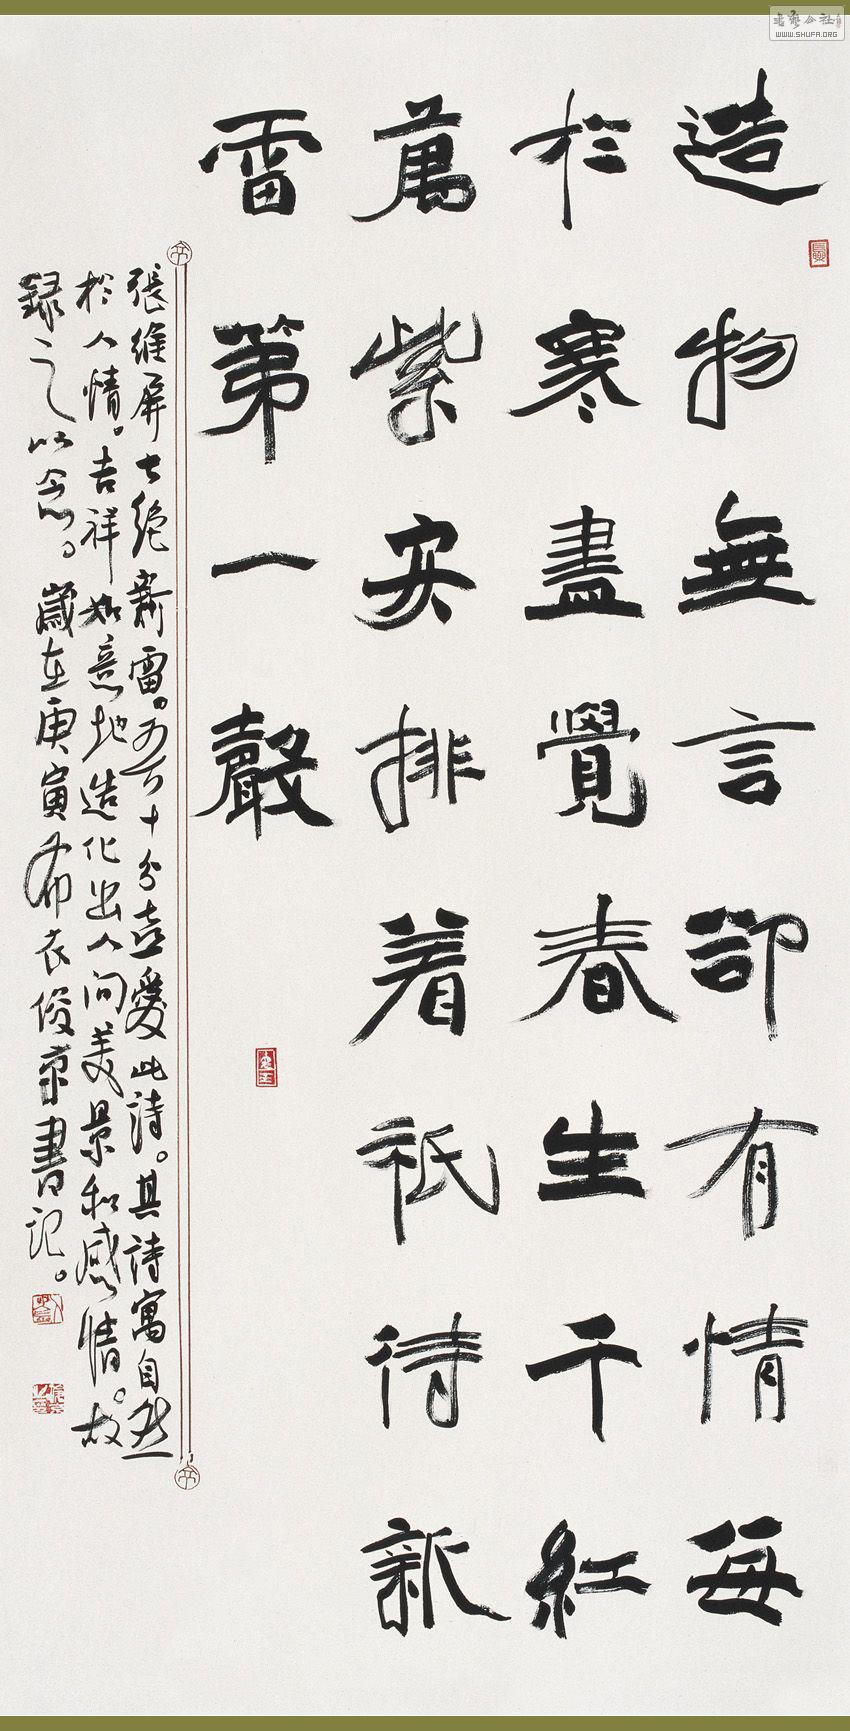 造物無言卻有情每
於寒盡覺春生千紅
萬紫安排着祇待新
雷第一聲
張維屏七絕新雷。吾十分喜愛此詩。其詩寓自然
於人情。吉祥如意地造化出人間美景和感情。故
録之以念。歲在庚寅布衣俊京書記。
WWW.SHUFA.ORG